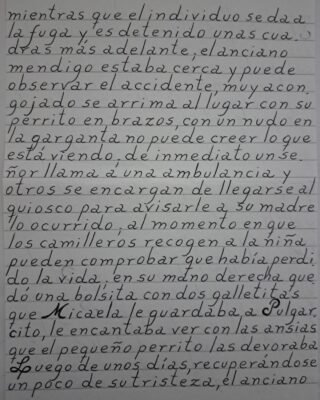 mientras que el individuo se da a
la fuga y es detenido unas cua_
dras más adelante, el anciano
mendigo estaba cerca y puede
observar el accidente, muy acon_
gojado se arrima al lugar con su
perrito en brazos, con un nudo en
la garganta no puede creer lo que
está viendo, de inmediato un se_
ñor llama a una ambulancia y
otros se encargan de llegarse al
quiosco para avisarle a su madre
lo ocurrido, al momento en que
los camilleros recogen a la niña
pueden comprobar que había perdi_
do la vida, en su mano derecha que_
dó una bolsita con dos galletitas
que Micaela le guardaba, a Pulgar_
cito, le encantaba ver con las ansias
que el pequeño perrito las devoraba
Luego de unos días, recuperándose
un poco de su tristeza, el anciano